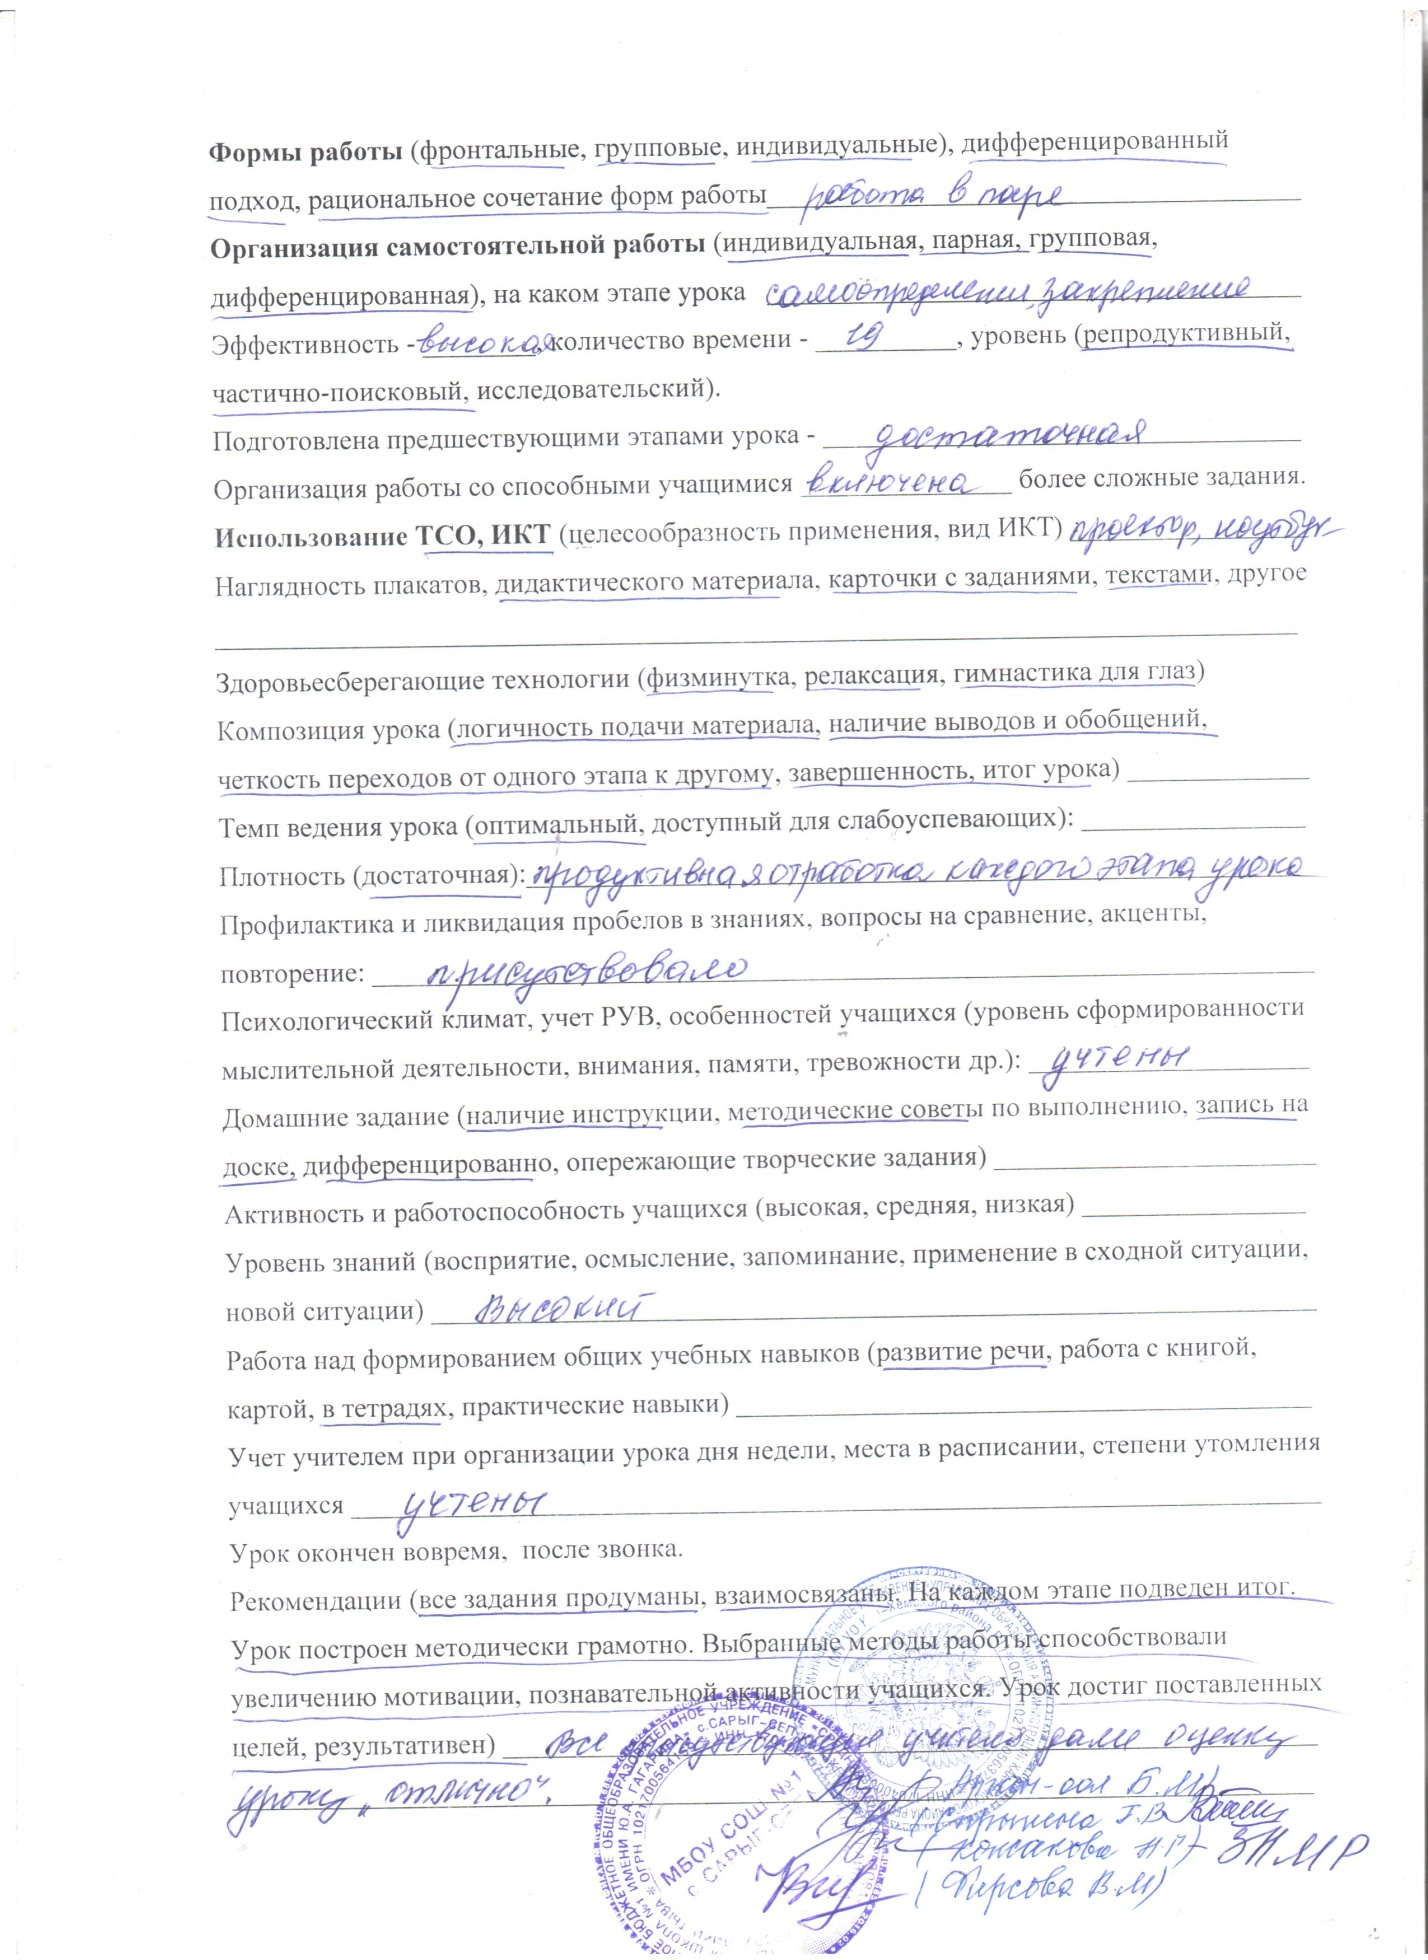 Формы работы (фронтальные, групповые, индивидуальные), дифференцированный
подход, рациональное сочетание форм работы работа в паре
Организация самостоятельной работы (индивидуальная, парная, групповая,
дифференцированная), на каком этапе урока самоопределения, закрепление
Эффективность - высокая, количество времени - 19, уровень (репродуктивный,
частично-поисковый, исследовательский).
Подготовлена предшествующими этапами урока - достаточная
Организация работы со способными учащимися включена более сложные задания.
Использование ТСО, ИКТ (целесообразность применения, вид ИКТ) проектор, ноутбук
Наглядность плакатов, дидактического материала, карточки с заданиями, текстами, другое
Здоровьесберегающие технологии (физминутка, релаксация, гимнастика для глаз)
Композиция урока (логичность подачи материала, наличие выводов и обобщений,
четкость переходов от одного этапа к другому, завершенность, итог урока)
Темп ведения урока (оптимальный, доступный для слабоуспевающих):
Плотность (достаточная): продуктивная отработка каждого этапа урока
Профилактика и ликвидация пробелов в знаниях, вопросы на сравнение, акценты,
повторение: присутствовало
Психологический климат, учет РУВ, особенностей учащихся (уровень сформированности
мыслительной деятельности, внимания, памяти, тревожности др.): учтены
Домашние задание (наличие инструкции, методические советы по выполнению, запись на
доске, дифференцированно, опережающие творческие задания)
Активность и работоспособность учащихся (высокая, средняя, низкая)
Уровень знаний (восприятие, осмысление, запоминание, применение в сходной ситуации,
новой ситуации) высокий
Работа над формированием общих учебных навыков (развитие речи, работа с книгой,
картой, в тетрадях, практические навыки)
Учет учителем при организации урока дня недели, места в расписании, степени утомления
учащихся учтены
Урок окончен вовремя, после звонка.
Рекомендации (все задания продуманы, взаимосвязаны. На каждом этапе подведен итог.
Урок построен методически грамотно. Выбранные методы работы способствовали
увеличению мотивации, познавательной активности учащихся. Урок достиг поставленных
целей, результативен) Все учителя дали оценку
уроку „отлично".
Б.М)
Г.В
Н.Г) - ЗНМР
(Фирсова В.М)
МБОУ СОШ №1
с. САРЫГ-СЕП